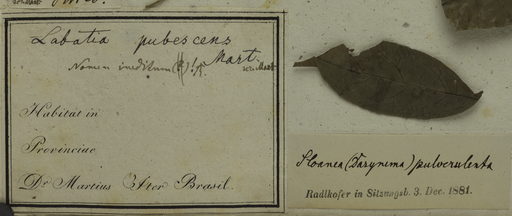 Labatia pubescens
Mart.
Nomen ineditum
scr. Mart
Habitat in
Provinciae
Dr. Martius Iter Brasil.
Sloanea (Dasynema) pulverulenta
Radlkofer in Sitzungsb. 3. Dec. 1881.